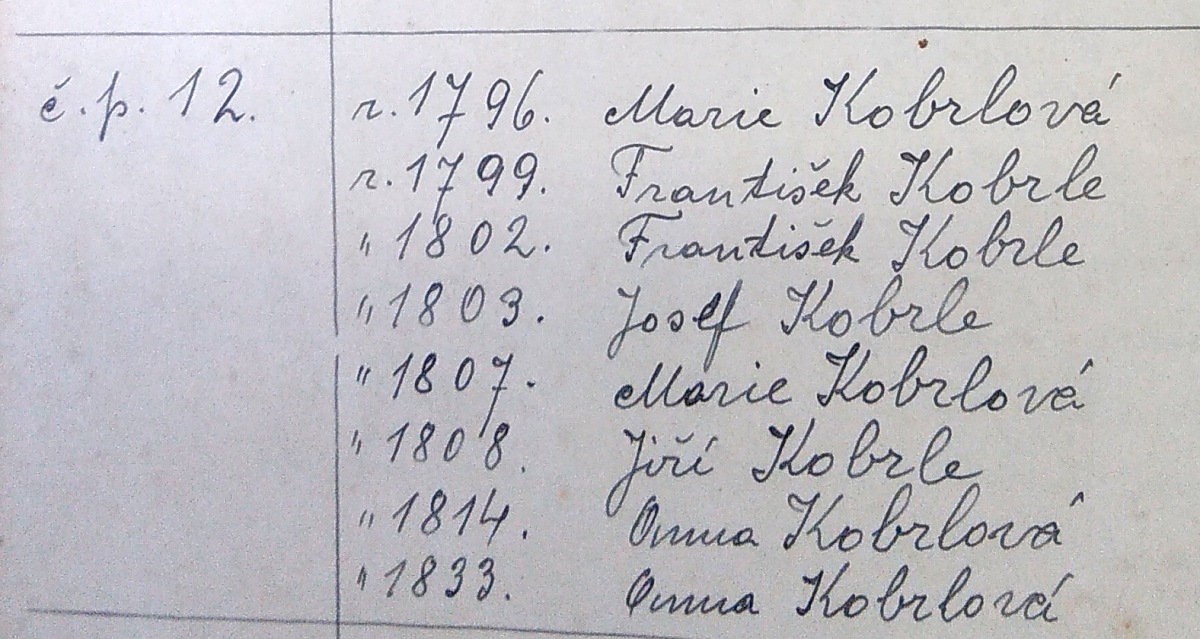 č.p. 12. r. 1796. Marie Kobrlová
r. 1799. František Kobrle
" 1802. František Kobrle
" 1803. Josef Kobrle
" 1807. Marie Kobrlová
" 1808. Jiří Kobrle
" 1814. Anna Kobrlová
" 1833. Anna Kobrlová